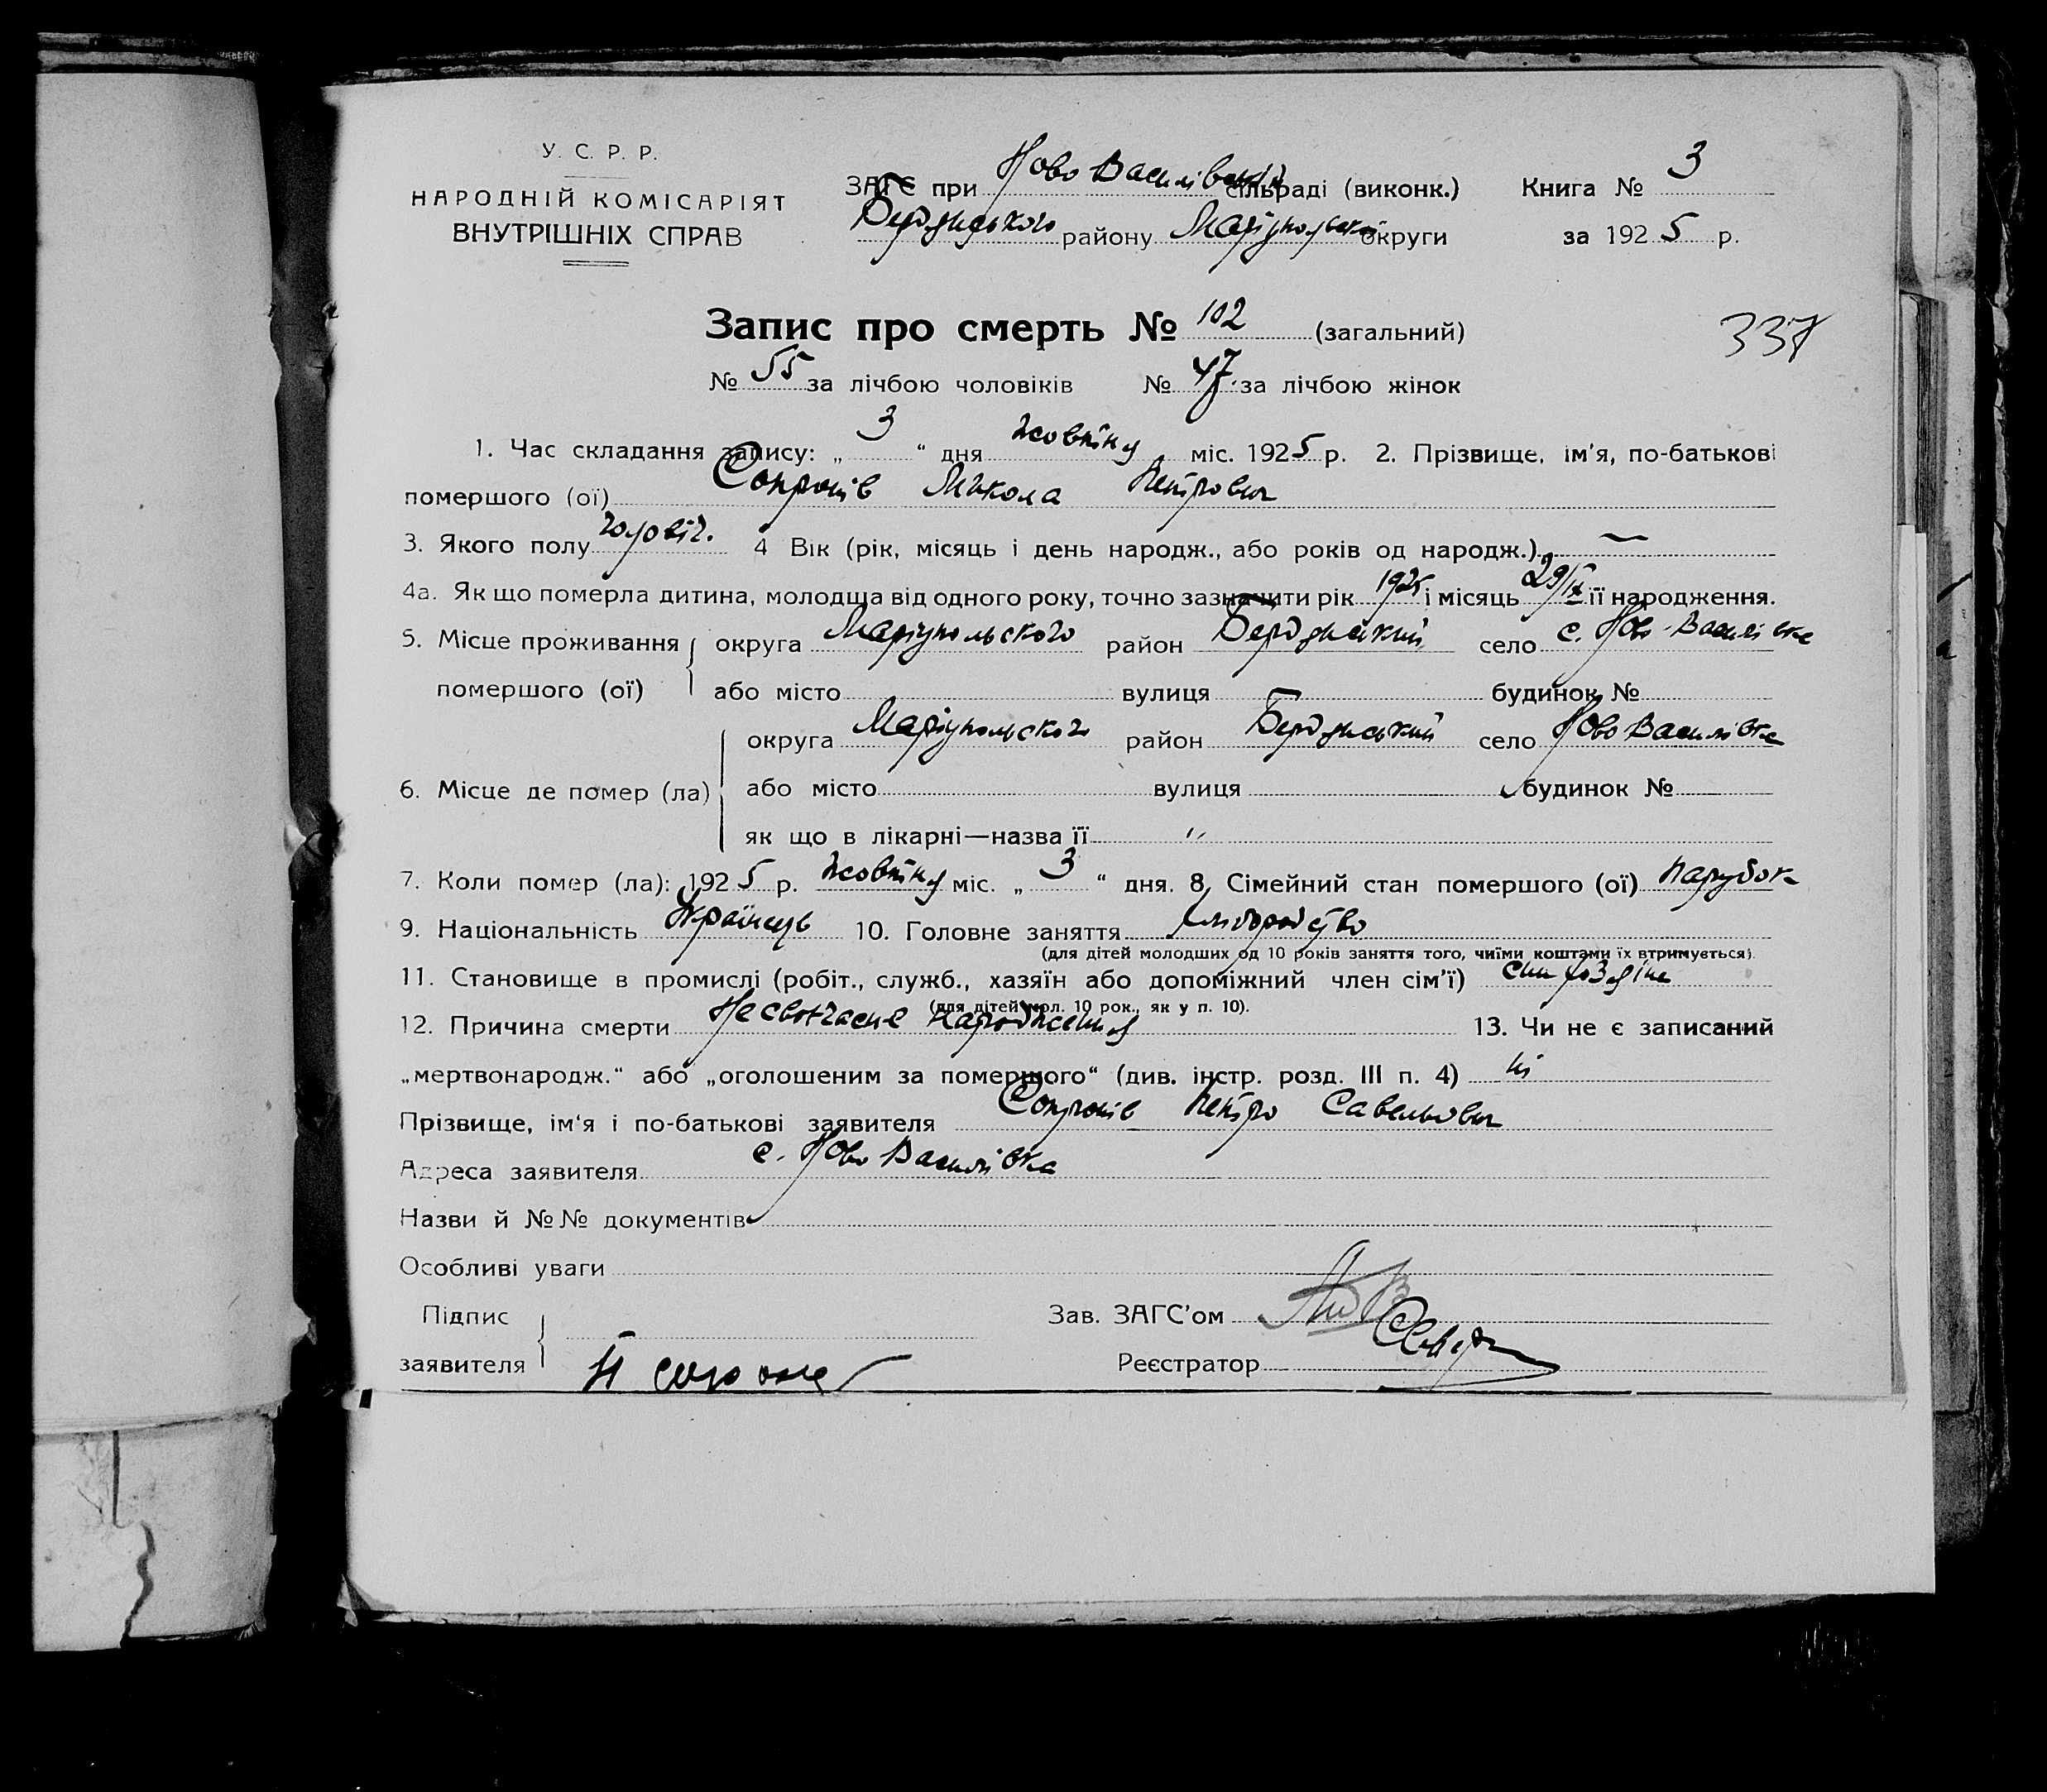 У. С. Р. Р.
НАРОДНІЙ КОМІСАРІЯТ
ВНУТРІШНІХ СПРАВ
ЗАГС при Ново Василівській сільраді (виконк.)
Бердянського району Маріупольської округи
Книга № 3
за 1925 р.
Запис про смерть № 102 (загальний)
337
№ 55 за лічбою чоловіків № 47 за лічбою жінок
1. Час складання запису: „ 3 “ дня жовтня міс. 1925 р. 2. Прізвище, ім'я, по-батькові
помершого (ої) Микола Петрович
3. Якого полу чоловіч. 4 Вік (рік, місяць і день народж., або років од народж.) —
4а. Як що померла дитина, молодща від одного року, точно зазначити рік 1925 і місяць 29/IX її народження.
5. Місце проживання помершого (ої) округа Маріупольского район Бердянський село с. Ново-Василівка
або місто вулиця будинок №
6. Місце де помер (ла) округа Маріупольского район Бердянський село Ново Василівка
або місто вулиця будинок №
як що в лікарні—назва її "
7. Коли помер (ла): 1925 р. жовтня міс. „ 3 “ дня. 8. Сімейний стан помершого (ої) парубок
9. Національність Українець 10. Головне заняття хліборобство
(для дітей молодших од 10 років заняття того, чиїми коштами їх втримується).
11. Становище в промислі (робіт., служб., хазяїн або допоміжний член сім'ї) син хазяїна
(для дітей мол. 10 рок., як у п. 10).
12. Причина смерти Несвоєчасне народження 13. Чи не є записаний
„мертвонародж.“ або „оголошеним за помершого“ (див. інстр. розд. III п. 4) ні
Прізвище, ім'я і по-батькові заявителя Петро Савельович
Адреса заявителя с. Ново Василівка
Назви й №№ документів
Особливі уваги
Підпис заявителя
Зав. ЗАГС'ом
Реєстратор